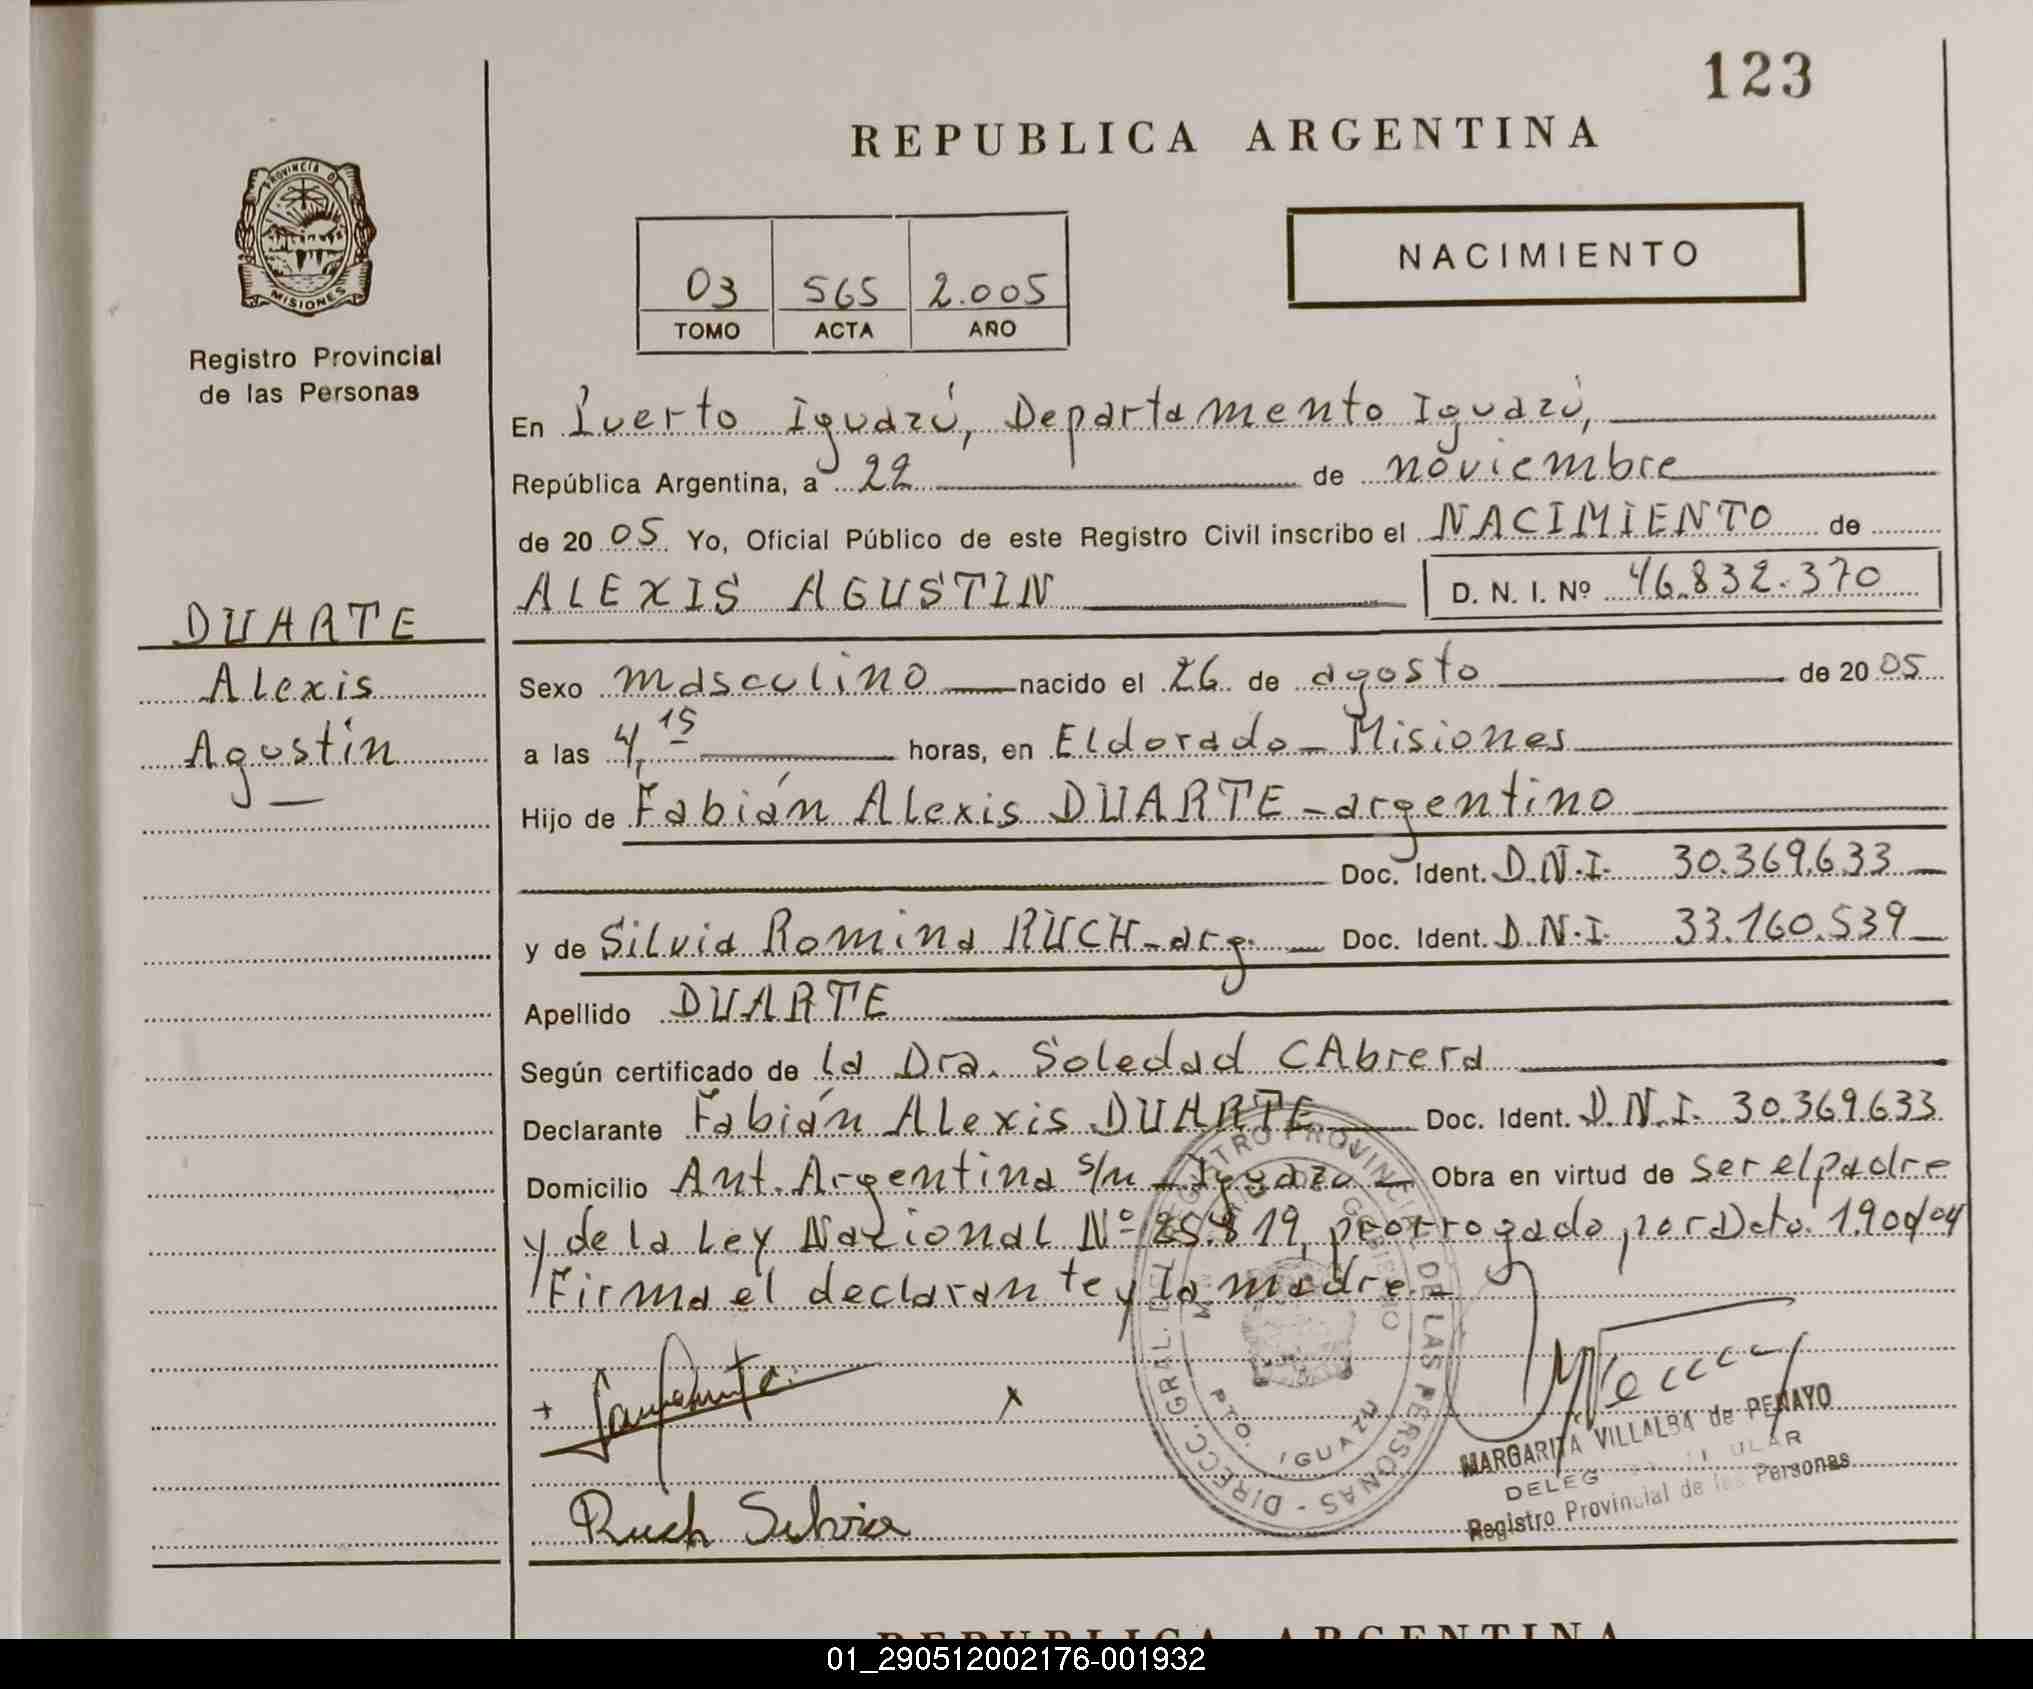 123
REPUBLICA ARGENTINA
PROVINCIA D
MISIONES
Registro Provincial
de las Personas
03 565 2.005
TOMO ACTA AÑO
NACIMIENTO
En Puerto Iguazú, Departamento Iguazú,
República Argentina, a 22 de noviembre
de 2005 Yo, Oficial Público de este Registro Civil inscribo el NACIMIENTO de
ALEXIS AGUSTIN D. N. I. Nº 46.832.370
DUARTE
Alexis
Agustín
Sexo masculino nacido el 26 de agosto de 2005
a las 4,15 horas, en Eldorado - Misiones
Hijo de Fabián Alexis DUARTE - argentino
Doc. Ident. D.N.I. 30.369.633
y de Silvia Romina RUCH - arg. Doc. Ident. D.N.I. 33.160.539
Apellido DUARTE
Según certificado de la Dra. Soledad CAbrera
Declarante Fabián Alexis DUARTE Doc. Ident. D.N.I. 30.369.633
Domicilio Ant. Argentina s/n - Iguazú Obra en virtud de ser el padre
y de la Ley Nacional Nº 25.819, prorrogado por Dcto. 1.900/04
Firma el declarante y la madre.
DIRECC. GRAL. DEL REGISTRO PROVINCIAL DE LAS PERSONAS
GOBIERNO
PTO. IGUAZU
+ x
Ruch Silvia
MARGARITA VILLALBA de PENAYO
DELEG ULAR
Registro Provincial de las Personas
REPUBLICA ARGENTINA
01_290512002176-001932